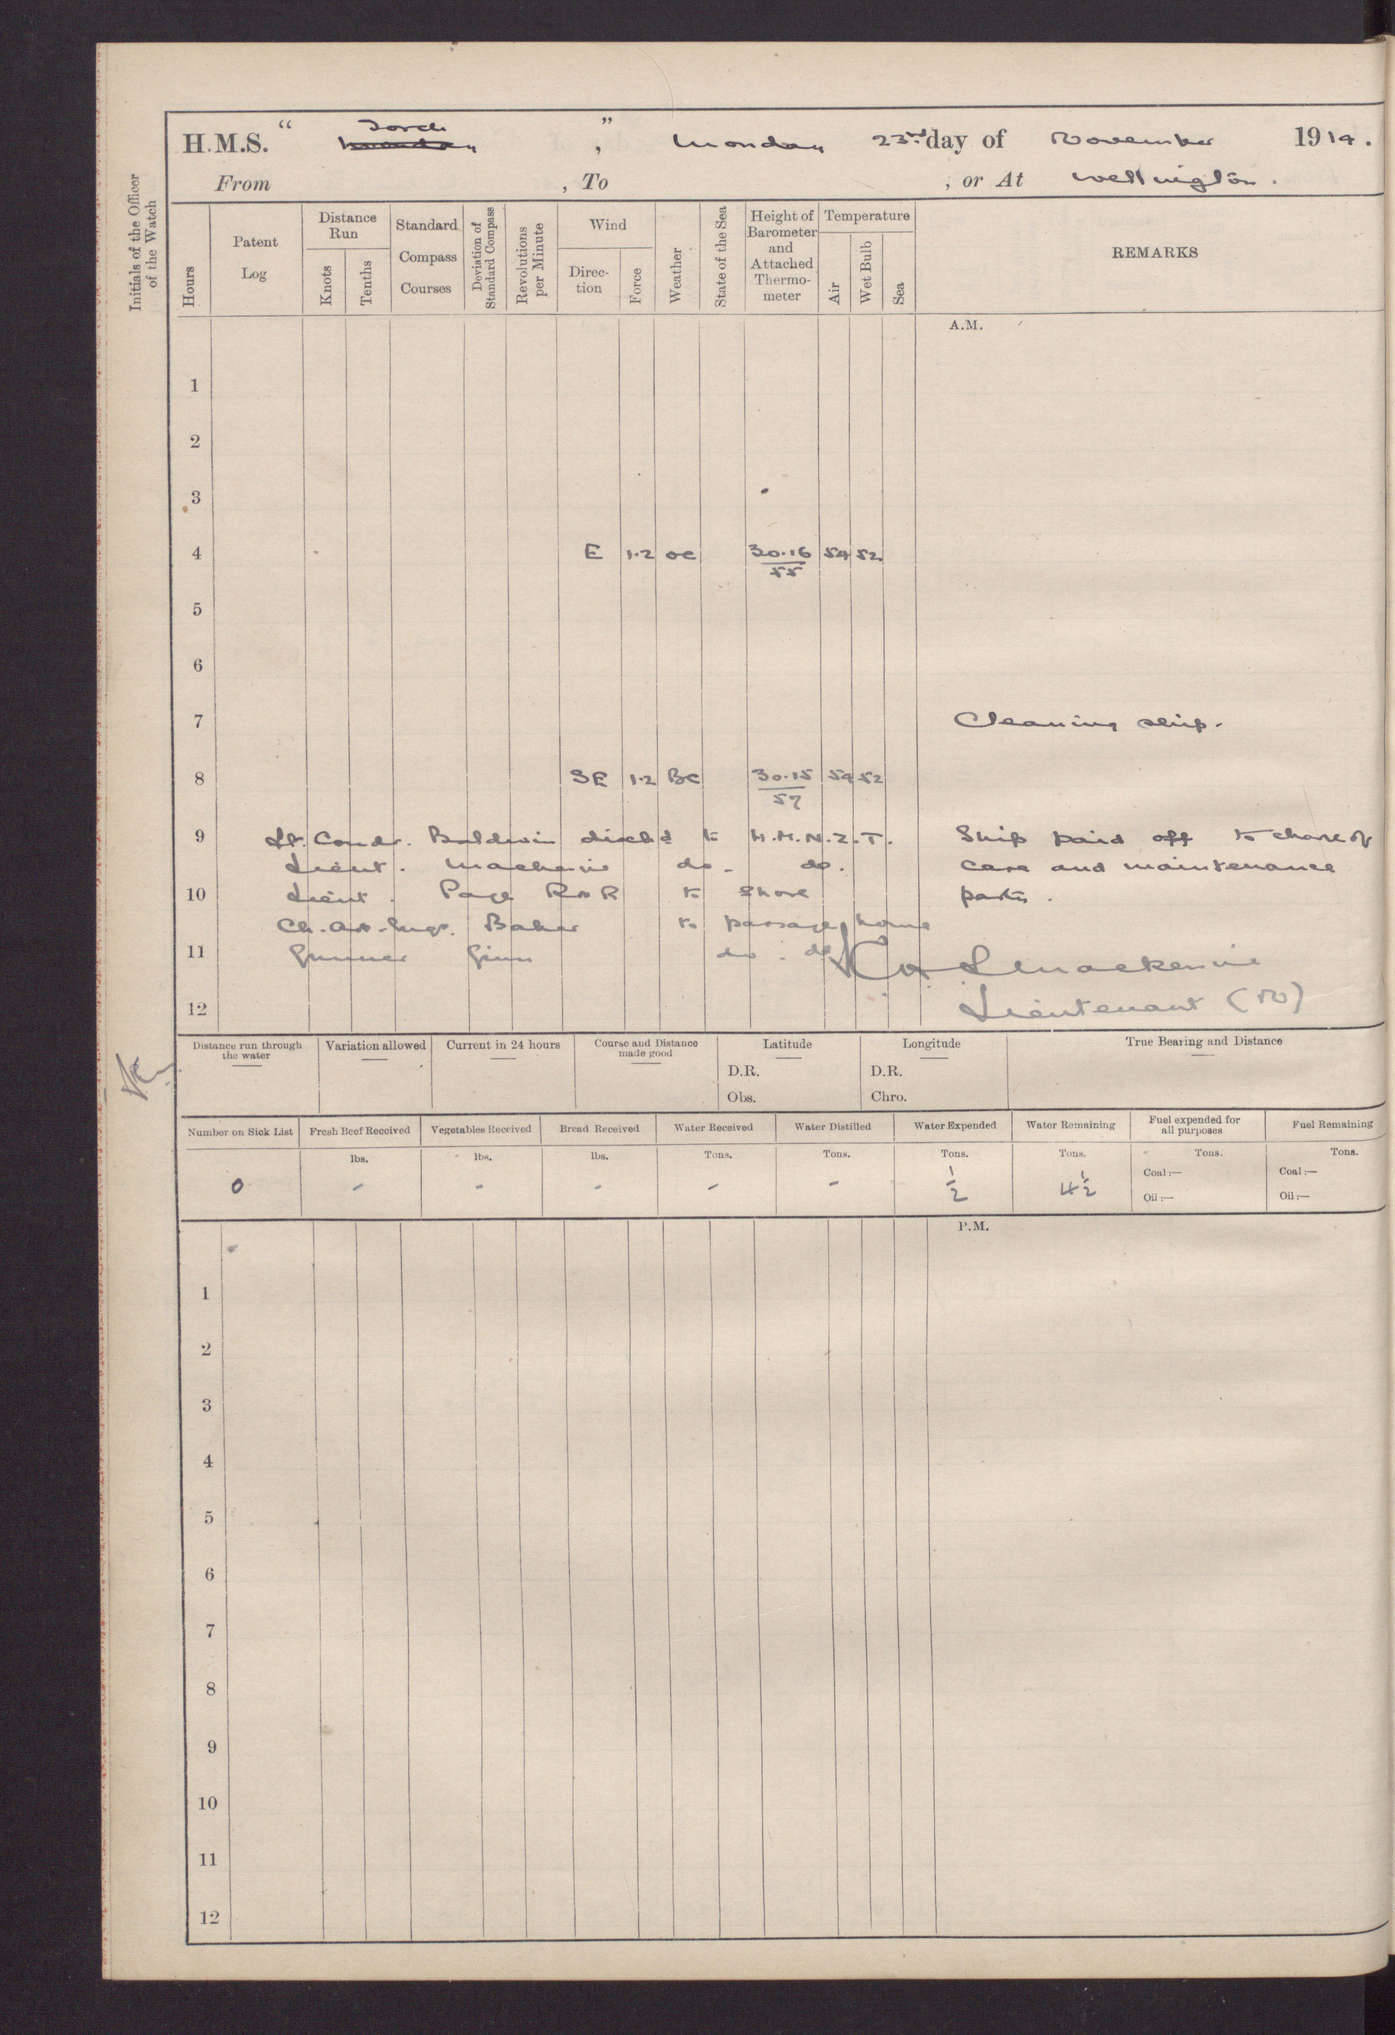 H.M.S. “ Torch ” , Monday 23rd day of November 1914.
From , To , or At Wellington.
Initials of the Officer of the Watch
Hours
Patent Log
Distance Run
Knots
Tenths
Standard Compass Courses
Deviation of Standard Compass
Revolutions per Minute
Wind
Direction
Force
Weather
State of the Sea
Height of Barometer and Attached Thermometer
Temperature
Air
Wet Bulb
Sea
REMARKS
A.M.
1
2
3
4 E 1.2 oc 30.16 54 52
55
5
6
7 Cleaning ship.
8 SE 1.2 BC 30.15 54 52
57
9 Lt. Comdr. Baldwin disch'd to H.M.N.Z.T. Ship paid off to charge of
Lieut. Mackenzie do. do. care and maintenance
10 Lieut. Page RNR to shore party.
Ch. Art. Engr. Baker to passage home
11 Gunner Ginn do. do. Mackenzie
12 Lieutenant (N)
Distance run through the water
Variation allowed
Current in 24 hours
Course and Distance made good
Latitude
D.R.
Obs.
Longitude
D.R.
Chro.
True Bearing and Distance
Number on Sick List
Fresh Beef Received
Vegetables Received
Bread Received
Water Received
Water Distilled
Water Expended
Water Remaining
Fuel expended for all purposes
Fuel Remaining
lbs. lbs. lbs. Tons. Tons. Tons. Tons. Tons. Tons.
Coal :— Coal :—
0 - - - - - ½ 4½
Oil :— Oil :—
P.M.
1
2
3
4
5
6
7
8
9
10
11
12